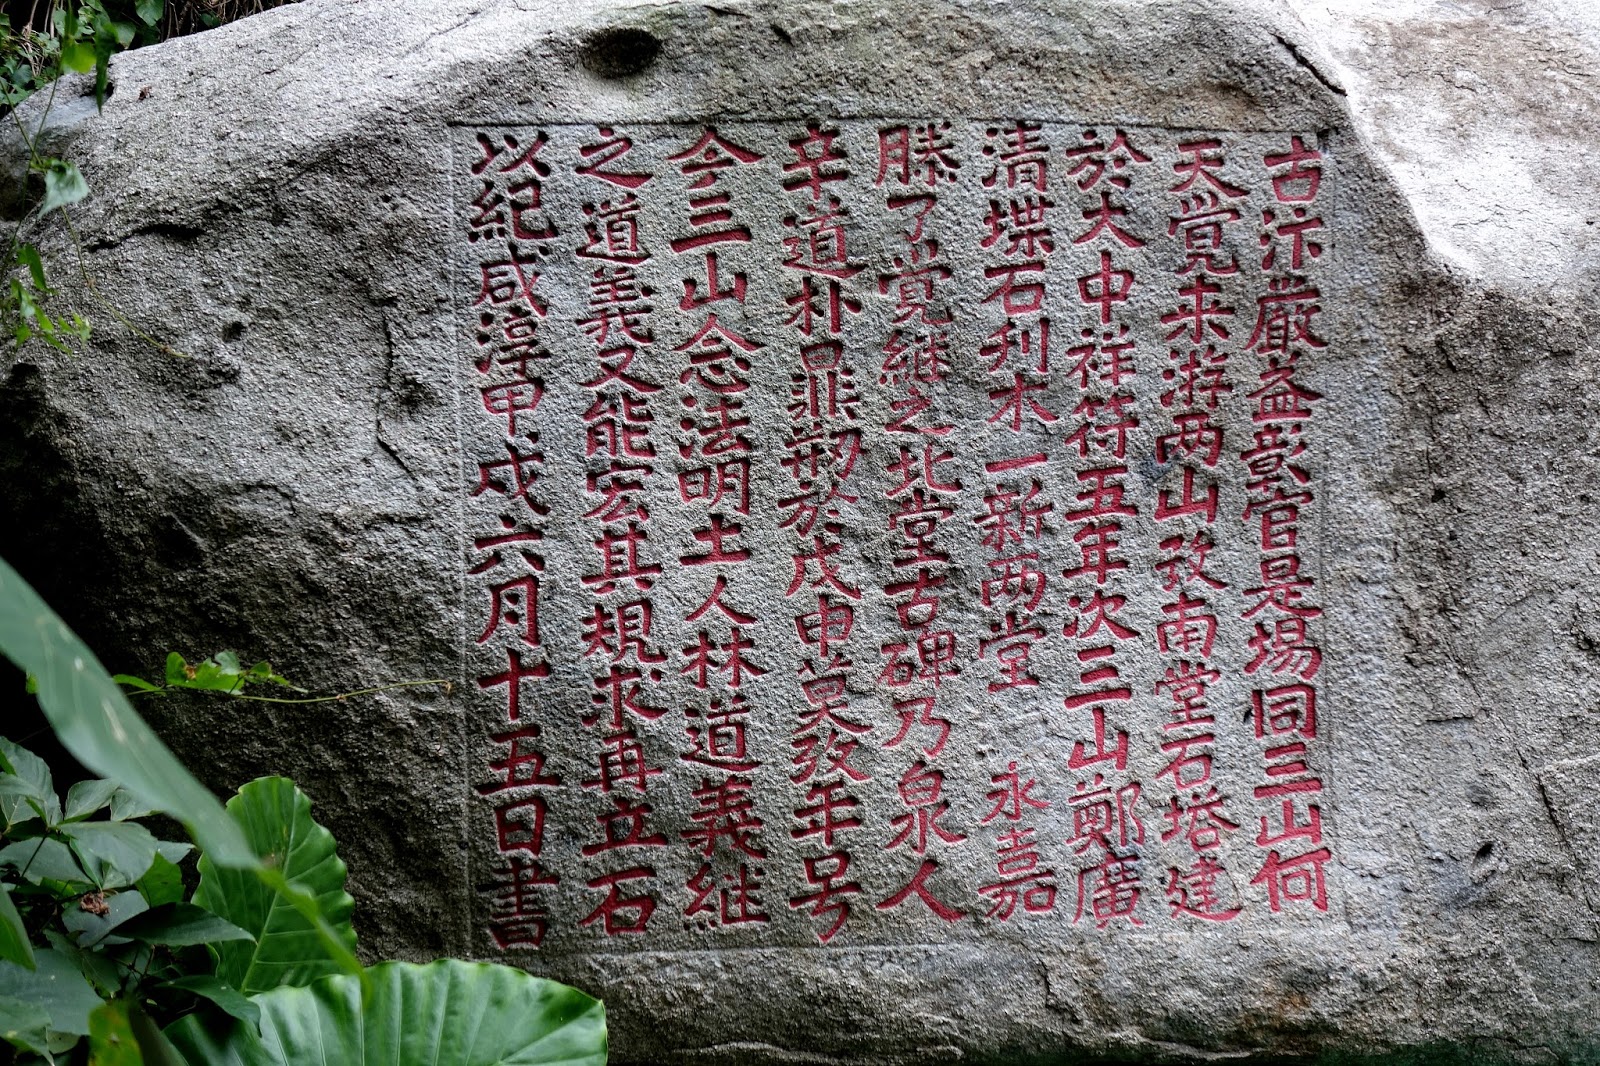 古汴嚴益彰官是場同三山何
天覺来游两山攷南堂石塔建
於大中祥符五年次三山鄭廣
清堞石刊木一新两堂 永嘉
滕了覺継之北堂古碑乃泉人
辛道朴鼎刱於戊申莫攷年号
今三山念法明土人林道義継
之道義又能宏其規求再立石
以紀咸淳甲戌六月十五日書